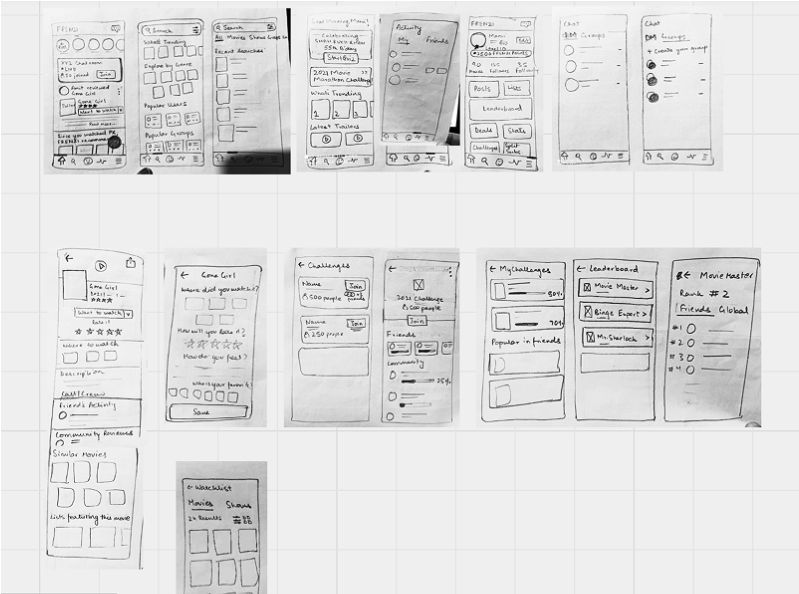 XYZ Chat room
LIVE
50 joined Join
Amit reviewed
Gone Girl
Gone Girl
Want to watch
Read more
Since you watched
Search
What's Trending
Explore by Genre
Popular Users
Popular Groups
Search
All Movies Shows
Recent Searches
Celebrating
55th Bday
Start Quiz
2021 Movie
Marathon Challenge
What's Trending
1 2 3
Latest Trailers
Activity
My Friends
Posts Lists
Leaderboard
Deals Stats
Chat
DM Groups
Chat
DM Groups
+ Create your group
Gone Girl
2021
Want to watch
Rate it
Where to watch
Description
Cast/Crew
Friend's Activity
Community Reviews
Similar Movies
Lists featuring this movie
← Gone Girl
Where did you watch it?
How will you rate it?
How do you feel?
Who is your favorite?
Save
← Challenges
Name Join
500 people
Name Join
250 people
2021 Challenge
500 people
Join
Friends
Community
25%
← My Challenges
80%
70%
Popular in friends
← Leaderboard
Movie Master >
Binge Expert >
Mr. Sherlock >
← Movie Master
Rank #2
Friends Global
#1
#2
#3
#4
← Watchlist
Movies Shows
Results